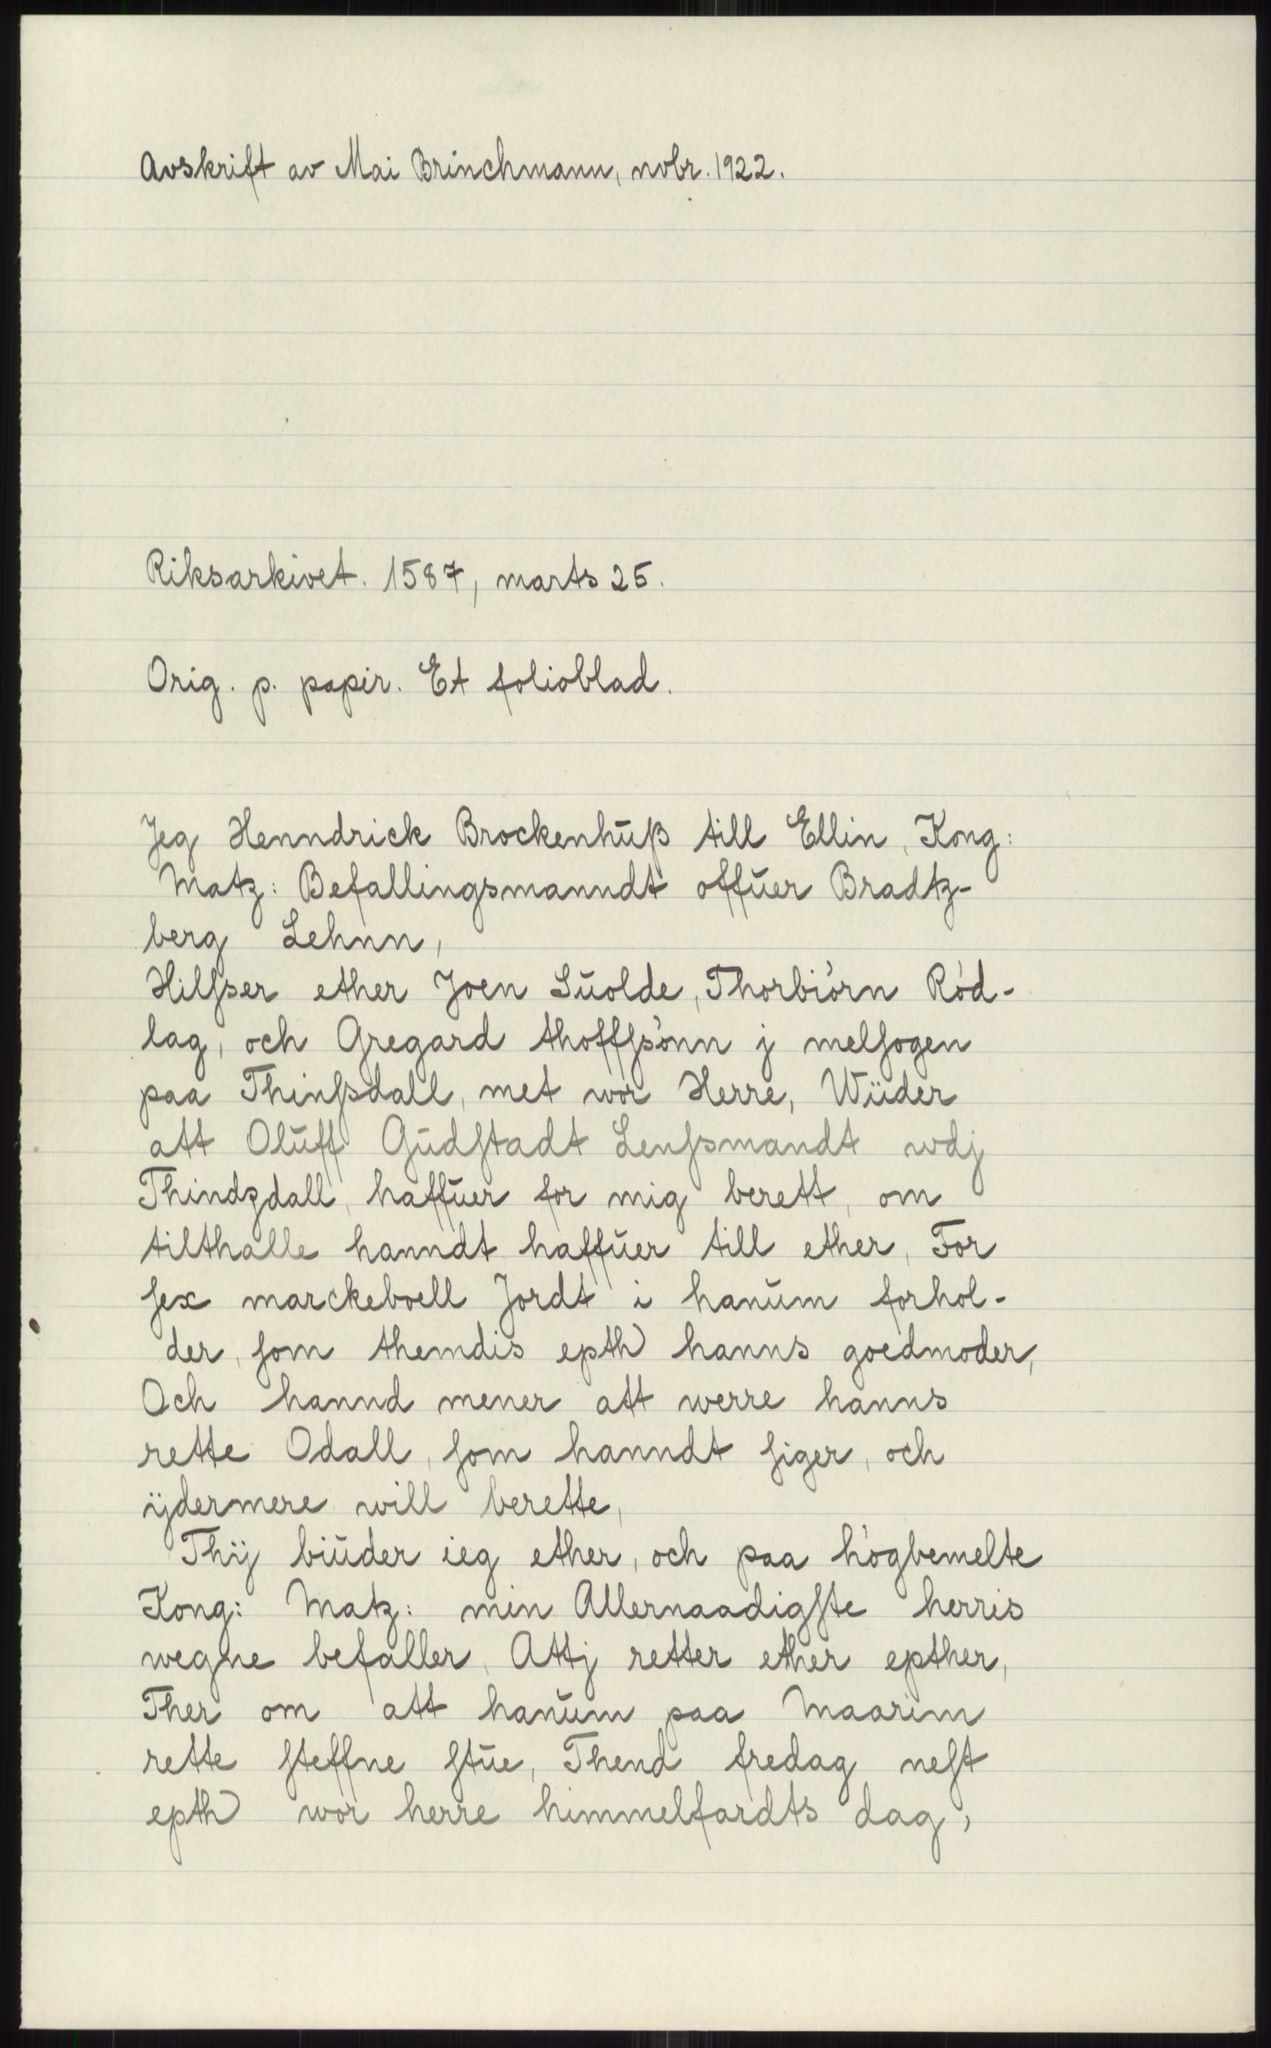 Avskrift av Mai Brinchmann, nvbr. 1922.
Riksarkivet. 1587, marts 25.
Orig. p. papir. Et folioblad.
Jeg Henndrick Brockenhŭß till Ellin, Kong:
Matz: Befallingsmanndt offŭer Bradtz-
berg Lehnn,
Hilſser ether Joen Sŭolde, Thorbiórn Ród-
lag, och Gregard thoffſsónn j melſogen
paa Thinſsdall, met wor Herre, Wŭder
att Olŭff Gŭdſtadt Lenſsmandt wdj
Thindzdall, haffŭer for mig berett, om
tilthalle hanndt haffŭer till ether, For
ſex marckeboell Jordt i hanŭm forhol-
der, ſom themdis epth hanns goedmoder,
Och hannd mener att werre hanns
rette Odall, ſom hanndt ſiger, och
ÿdermere will berette,
Thÿ biŭder ieg ether, och paa hógbemelte
Kong: Matz: min Allernaadigſte herris
wegne befaller, Attj retter ether epther,
Ther om att hanŭm paa Maarim
rette ſteffne ſtŭe, Thend fredag neſt
epth wor herre himmelfardts dag,